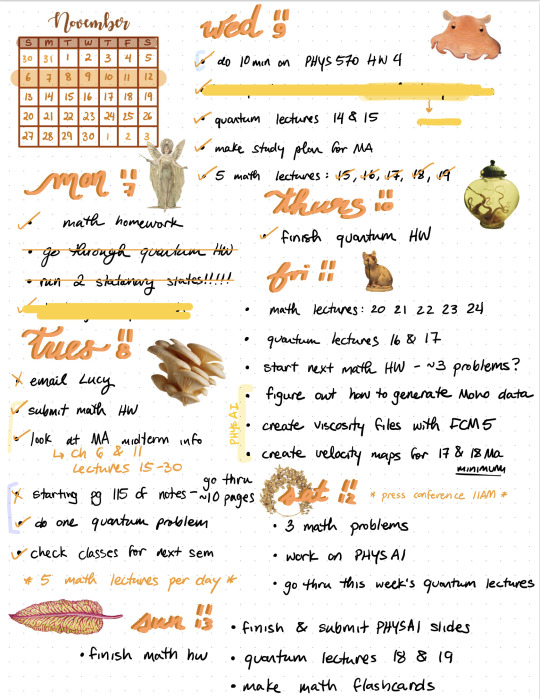 November
S M T W T F S
30 31 1 2 3 4 5
6 7 8 9 10 11 12
13 14 15 16 17 18 19
20 21 22 23 24 25 26
27 28 29 30 1 2 3
mon 7
math homework
go through quantum HW
run 2 stationary states!!!!!
tues 8
email Lucy
submit math HW
look at MA midterm info
↳ Ch 6 & 11
Lectures 15-30
starting pg 115 of notes - go thru ~10 pages
do one quantum problem
check classes for next sem
* 5 math lectures per day *
wed 9
do 10 min on PHYS 570 HW 4
quantum lectures 14 & 15
make study plan for MA
5 math lectures: 15, 16, 17, 18, 19
thurs 10
finish quantum HW
fri 11
math lectures: 20 21 22 23 24
quantum lectures 16 & 17
start next math HW - ~3 problems?
PHYSAI
figure out how to generate Moho data
create viscosity files with FCM5
create velocity maps for 17 & 18 Ma
minimum
sat 12
* press conference 11AM *
3 math problems
work on PHYSAI
go thru this week's quantum lectures
sun 13
finish math hw
finish & submit PHYSAI slides
quantum lectures 18 & 19
make math flashcards